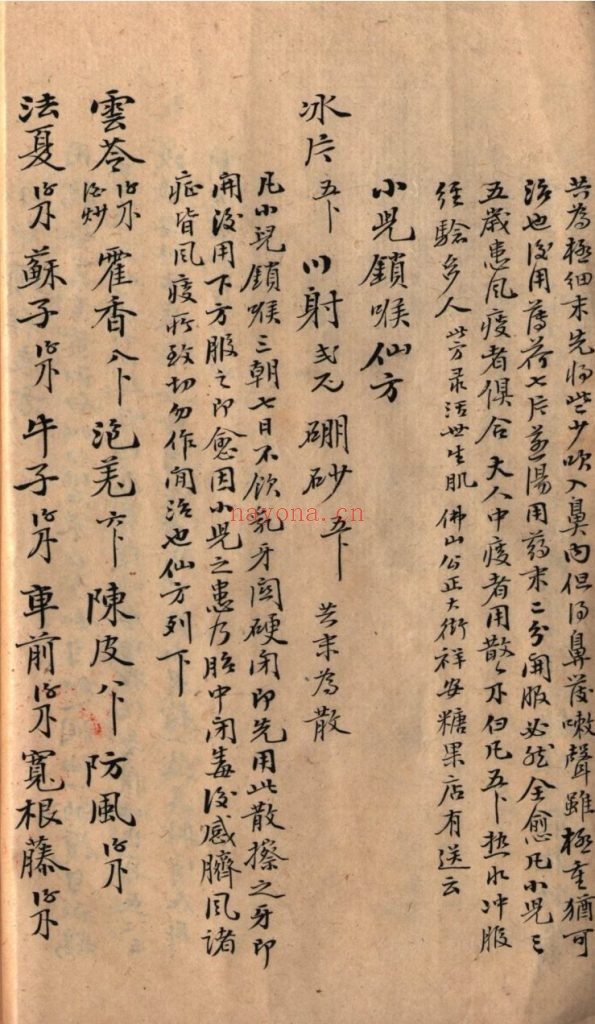 共為極細末先將些少吹入鼻內但得鼻發嗽聲雖極重猶可
治也後用薄荷七片煎湯用葯末二分開服必然全愈凡小兒三
五歲患風痰者俱合 大人中痰者用散
五卜热水冲服
經驗多人 此方录活世生肌 佛山公正大街祥安糖果店有送云
小兒鎖喉仙方
冰片五卜 川射 硼砂五卜 共末為散
凡小兒鎖喉三朝七日不飲乳牙關硬閉即先用此散擦之牙即
開後用下方服之即愈因小兒之患乃胎中閉毒後感臍風諸
症皆風痰所致切勿作閒治也仙方列下
雲苓 炒 霍香 卜 泡羌 卜 陳皮 卜 防風
法夏 蘇子 牛子 車前 寬根藤
nayona.cn